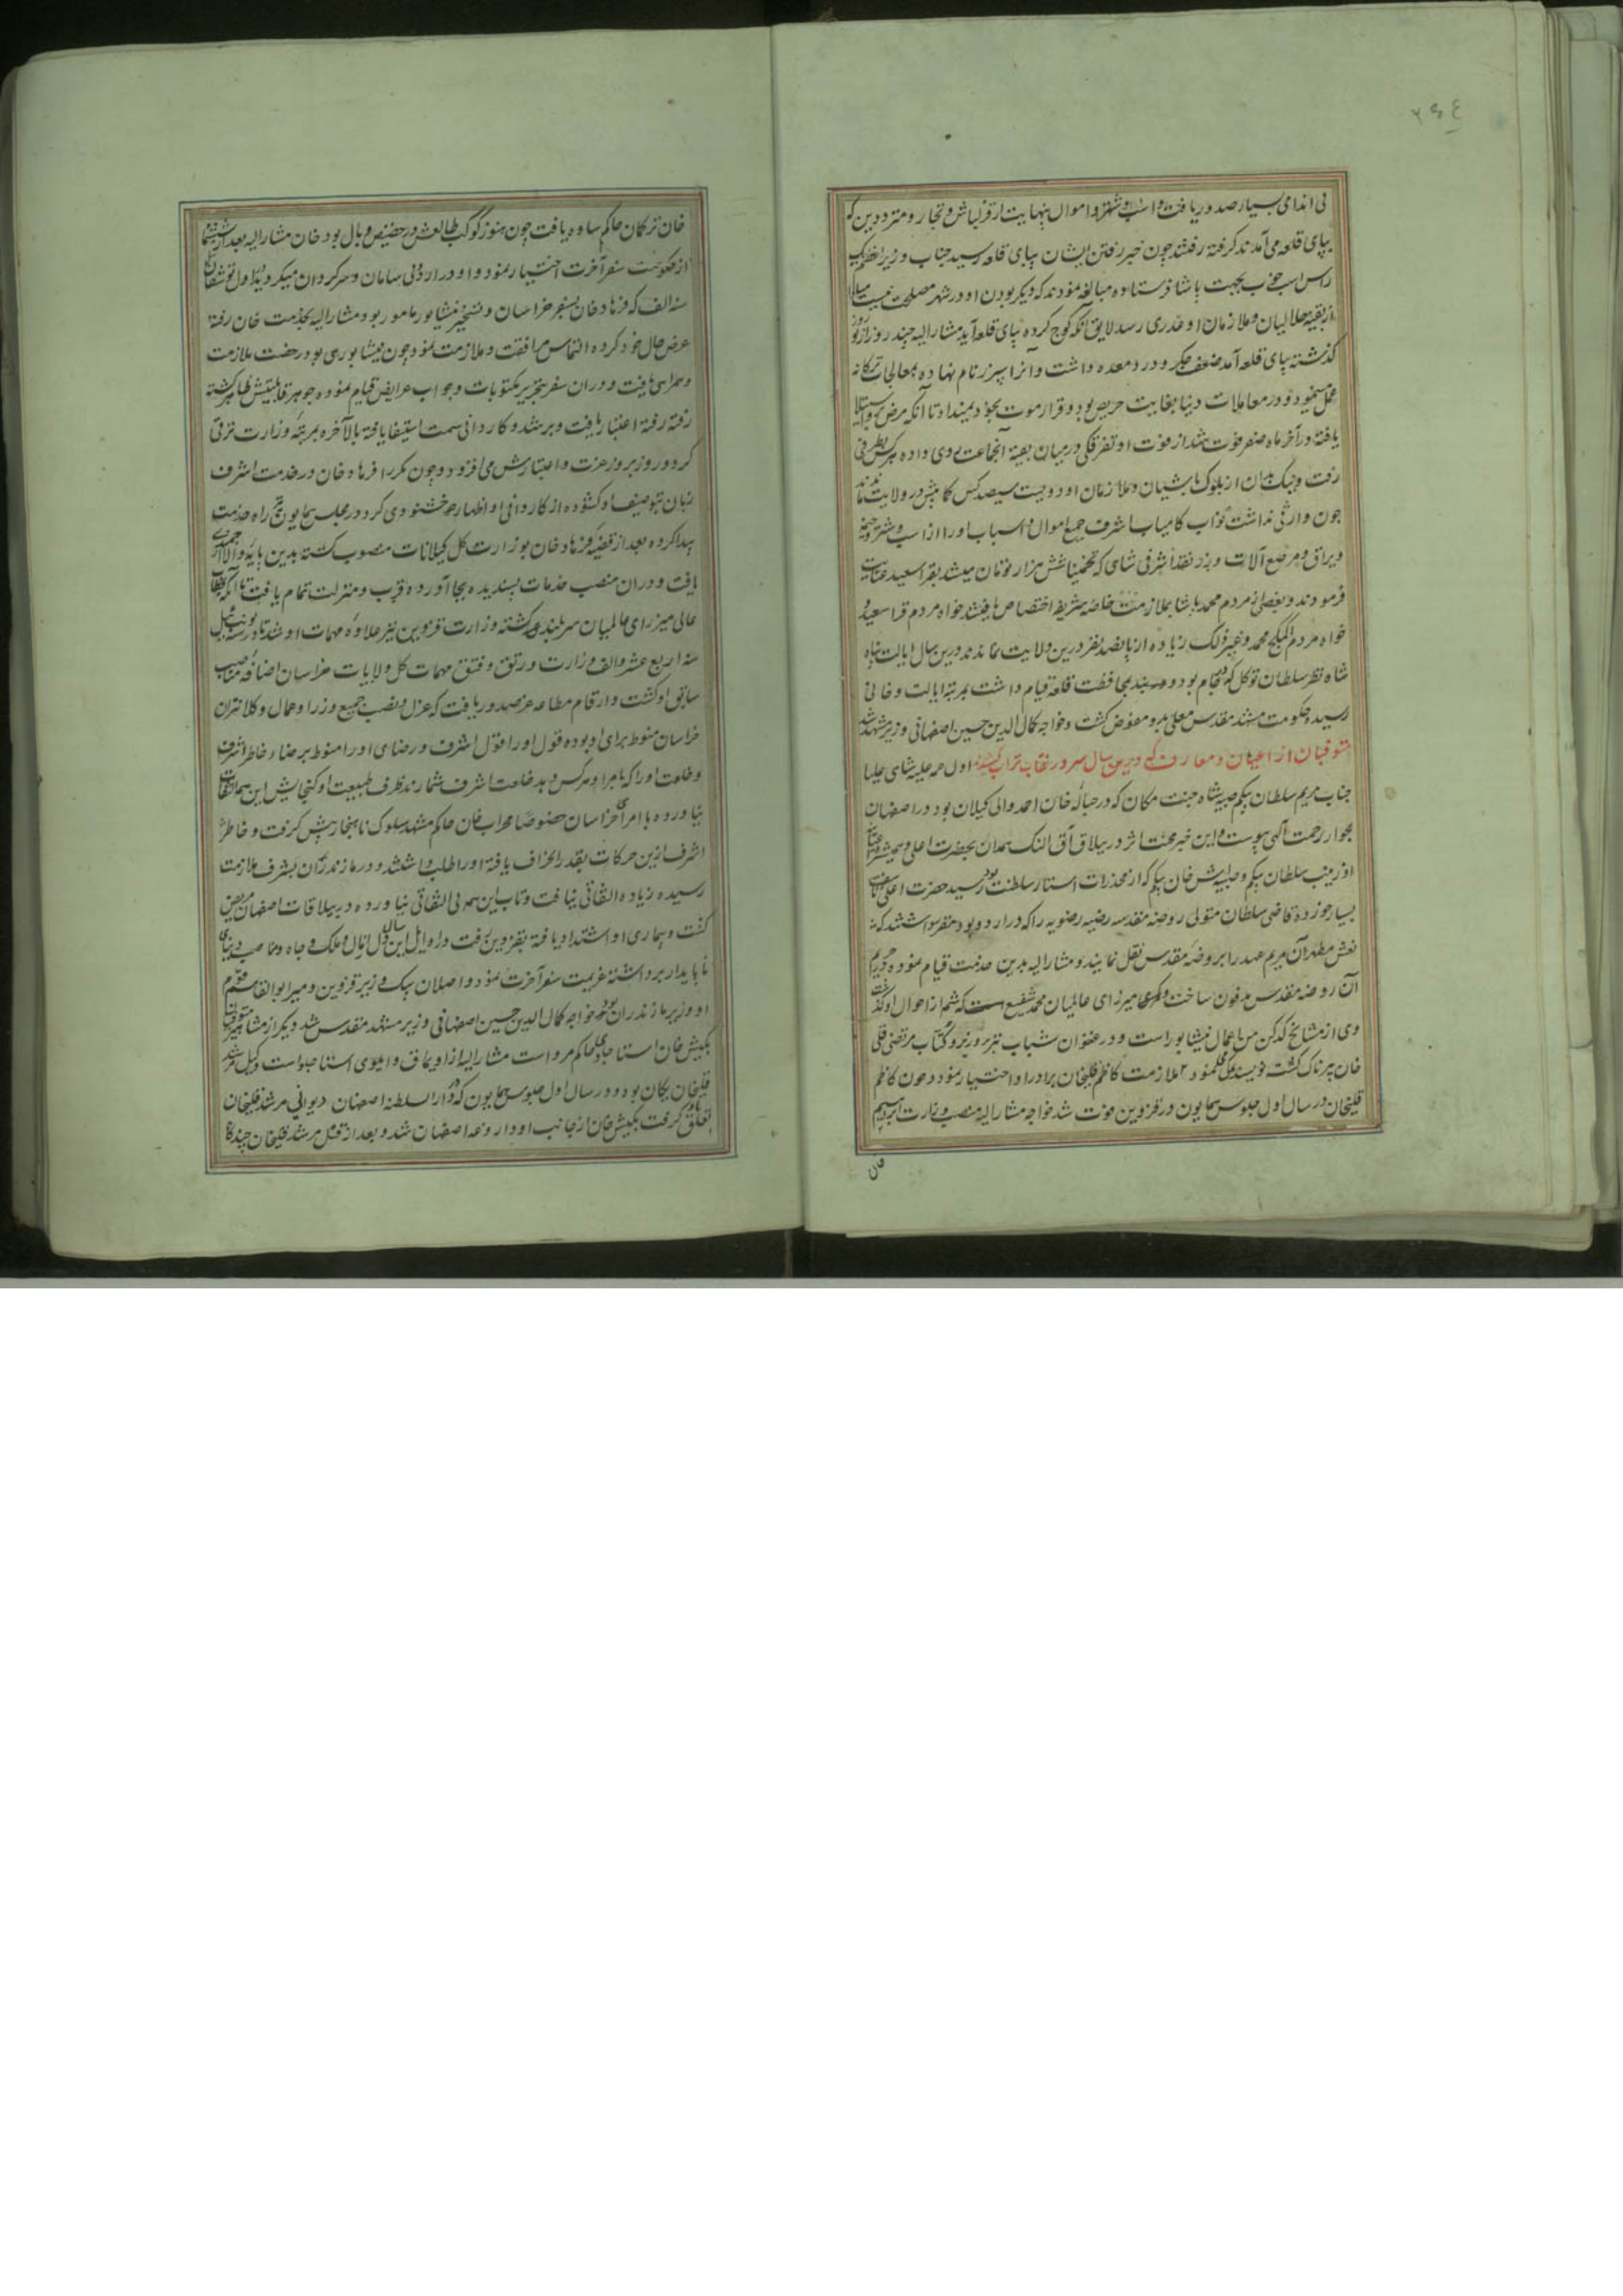 ۳۶۴
بی اندامی بسیار صدور یافت و اسب و شتر و اموال بنهایت از قزلباش و تجار و مترددین که
بپای قلعه می آمدند گرفته رفتند چون خبر رفتن ایشان بپای قلعه رسید جناب وزیر اعظم یک
راس اسب خوب بجهت پاشا فرستاده مبالغه نمودند که دیگر بودن او در شهر مصلحت نیست مبادا
از بقیه جلالیان و ملازمان او غدری رسد لایق آنکه کوچ کرده بپای قلعه آید مشارالیه چند روز از نوروز
گذشته بپای قلعه آمد ضعف جگر و درد معده داشت و آنرا سپرز نام نهاده بمعالجات ترکانه
عمل مینمود و در معاملات دنیا بغایت حریص بود و قرار موت بخود نمیداد تا آنکه مرض استیلا
یافته در آخر ماه صفر فوت شد از فوت او تفرقگی در میان بقیه آنجماعت روی داده هر کس بطرفی
رفت و از بلوک باشیان و ملازمان او دویست سیصد کس کمابیش در ولایت ماندند
چون وارثی نداشت نواب کامیاب اشرف جمیع اموال و اسباب او را از اسب و شتر و خیمه
و یراق و مرصع آلات و زر نقد اشرفی شاهی که تخمینا شش هزار تومان میشد بقرا سعید عنایت
فرمودند و بعضی از مردم محمد پاشا بملازمت خاصه شریفه اختصاص یافتند خواه مردم قرا سعید و
خواه مردم محمد و غیر ذلک زیاده از پانصد نفر درین ولایت نماندند درین سال ایالت پناه
شاه نظر سلطان توکلی که بود و بمحافظت قلعه قیام داشت بمرتبه ایالت و خانی
رسیده حکومت مشهد مقدس معلی بدو مفوض گشت و خواجه کمال الدین حسین اصفهانی وزیر مشهد شد
متوفیان از اعیان و معارف که درین سال سر در نقاب تراب کشیدند اول مرحله علیه شاهی علیا
جناب مریم سلطان بیگم صبیه شاه جنت مکان که در حباله خان احمد والی گیلان بود در اصفهان
بجوار رحمت الهی پیوست و این خبر محنت اثر در ییلاق آق النک همدان بحضرت اعلی و همشیره اعیانی
او زینب سلطان بیگم و صبیه اش خان بیگم که از مخدرات استار سلطنت بود رسید حضرت اعلی
بسیار خورده قاضی سلطان متولی روضه مقدسه رضیه رضویه را که در اردو بود مقرر داشتند که
نعش مطهر آن مریم عهد را بروضه مقدس نقل نمایند و مشارالیه بدین خدمت قیام نموده در حریم
آن روضه مقدس مدفون ساخت دیگر میرزای عالمیان محمد شفیع است که شمه از احوال او گذشت
وی از مشایخ کدکن من اعمال نیشابور است و در عنفوان شباب نیز در و کتاب مرتضی قلی
خان پرناک گشته نویسندگی مینمود ملازمت کاظم قلیخان برادر او اختیار نمود و چون کاظم
قلیخان در سال اول جلوس همایون در قزوین فوت شد خواجه مشارالیه منصب وزارت ابراهیم
خان
خان ترکمان حاکم ساوه یافت چون هنوز کوکب طالعش در حضیض وبال بود خان مشارالیه بعد از
از حکومت سفر آخرت اختیار نمود و او در اردو بی سامان و سرگردان میگردید تا اوان
سنه الف که فرهاد خان بسفر خراسان و تسخیر نیشابور مامور بود مشارالیه بخدمت خان رفته
عرض حال خود کرده التماس مرافقت و ملازمت نمود و چون نیشابوری بود رخصت ملازمت
و همراهی یافت و در آن سفر بتحریر مکتوبات و جواب عرایض قیام نموده جوهر قابلیتش ظاهر گشته
رفته رفته اعتبار یافت و برشد و کاردانی سمت استیفا یافته بالآخره بمرتبه وزارت ترقی
کرد و روز بروز عزت و اعتبارش می افزود و چون مکررا فرهاد خان در خدمت اشرف
زبان بتوصیف او گشوده از کاردانی او اظهار خشنودی کرد در مجلس همایون راه خدمت
پیدا کرده بعد از قضیه فرهاد خان بوزارت کل گیلانات منصوب گشته بدین پایه والا
یافت و در آن منصب خدمات پسندیده بجا آورده قرب و منزلت تمام یافت تا آنکه بخطاب
عالی میرزای عالمیان سربلند گشته وزارت قزوین نیز علاوه مهمات او شد تا در
سنه اربع عشر و الف وزارت و رتق و فتق مهمات کل ولایات خراسان اضافه مناصب
سابق او گشت و ارقام مطاعه عز صدور یافت که عزل و نصب جمیع وزرا و عمال و کلانتران
خراسان منوط برای او بوده قول او را قول اشرف و رضای او را منوط برضاء خاطر اشرف
و خلعت او را که بامرا و هر کس دهد خلعت اشرف شمارند ظرف طبیعت او گنجایش این همه التفات
نیاورده با امرای خراسان خصوصا محراب خان حاکم مشهد سلوک ناهنجار پیش گرفت و خاطر
اشرف ازین حرکات بقدر انحراف یافته او را طلب داشتند و در مازندران بشرف ملازمت
رسیده زیاده التفاتی نیافت و تاب این همه بی التفاتی نیاورده در ییلاقات اصفهان مریض
گشت و بیماری او اشتداد یافته بقزوین رفت در اوایل این سال دل از مال و ملک و جاه و مناصب دنیای
ناپایدار برداشته عزیمت سفر آخرت نمود و اصلان بیک وزیر قزوین و میر ابوالقاسم
او وزیر مازندران بود خواجه کمال الدین حسین اصفهانی وزیر مشهد مقدس شد دیگر از مشاهیر متوفیان
بکتش خان استاجلو حاکم مرو است مشارالیه از اویماق استاجلو است وکیل مرشد
قلیخان یکان بود و در سال اول جلوس همایون که دار السلطنه اصفهان دیوانی مرشد قلیخان
تعلق گرفت بکتش خان از جانب او داروغه اصفهان شد و بعد از قتل مرشد قلیخان چندگاه